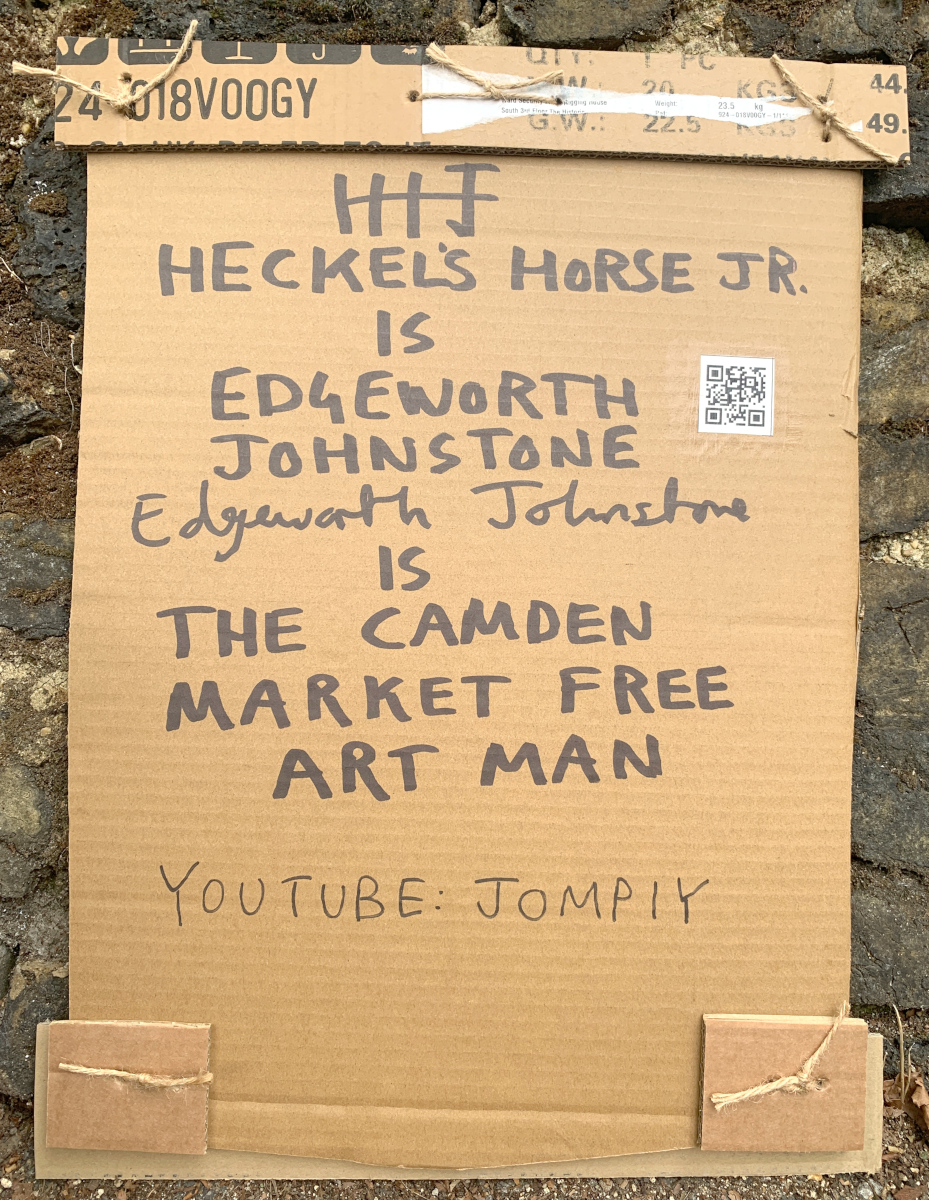 24-018V00GY
QTY: 1 PC
20 KGS / 44.
Weight: 23.5 kg
G.W.: 22.5 KGS 49.
HHJ
HECKEL'S HORSE JR.
IS
EDGEWORTH
JOHNSTONE
Edgeworth Johnstone
IS
THE CAMDEN
MARKET FREE
ART MAN
YOUTUBE: JOMPIY